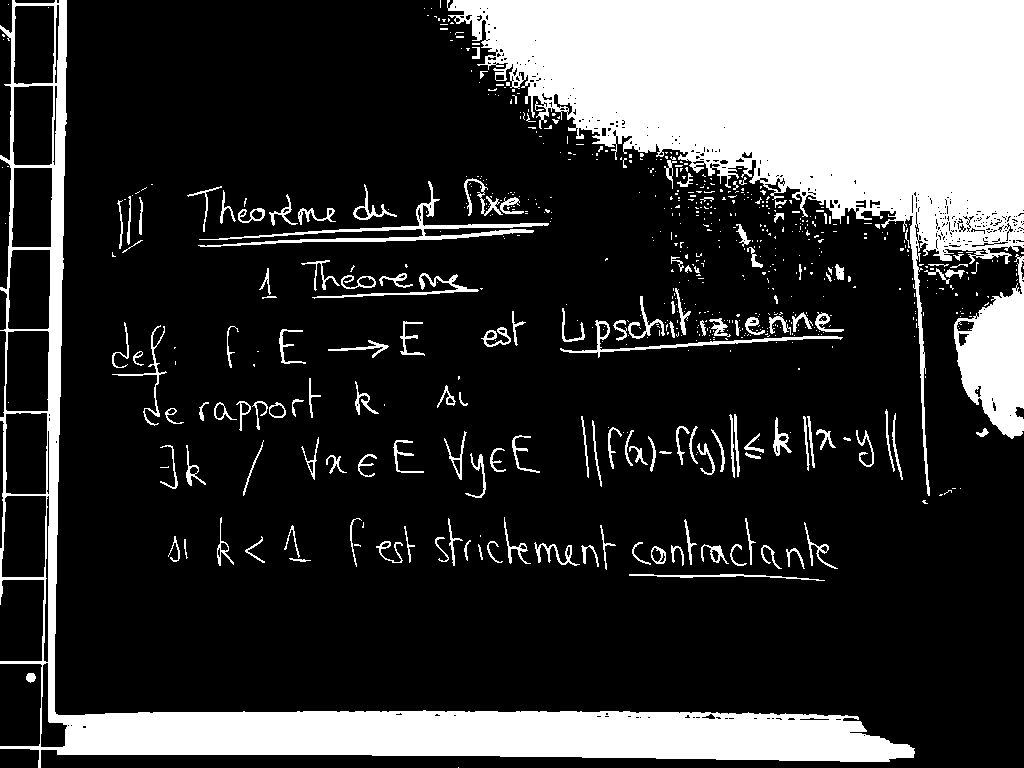 III Théorème du pt fixe
1 Théorème
def: f: E → E est Lipschitizienne
de rapport k si
∃k / ∀x ∈ E ∀y ∈ E ||f(x)-f(y)|| ≤ k ||x-y||
si k < 1 f est strictement contractante